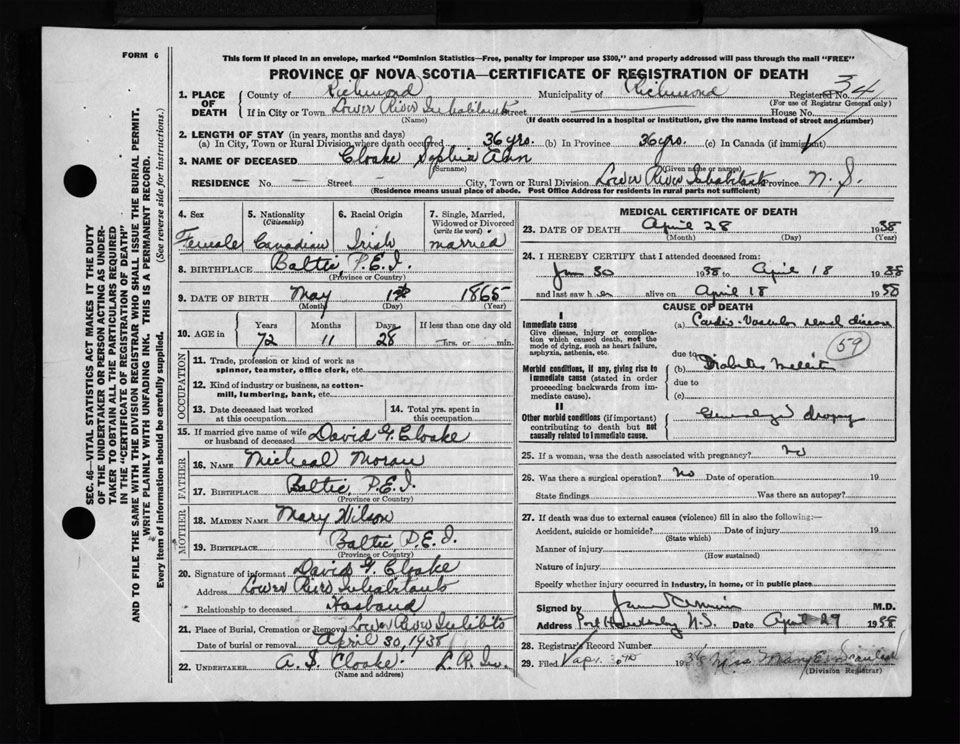 FORM 6
This form if placed in an envelope, marked "Dominion Statistics—Free, penalty for improper use $300," and properly addressed will pass through the mail "FREE"
PROVINCE OF NOVA SCOTIA—CERTIFICATE OF REGISTRATION OF DEATH
1. PLACE OF DEATH County of Richmond Municipality of Richmond Registered No. 34
(For use of Registrar General only)
If in City or Town Lower River Inhabitants Street House No.
(Name) (If death occurred in a hospital or institution, give the name instead of street and number)
2. LENGTH OF STAY (in years, months and days)
(a) In City, Town or Rural Division where death occurred 36 yrs. (b) In Province 36 yrs. (c) In Canada (if immigrant)
3. NAME OF DECEASED Cloake Sophia Ann
(Surname) (Given name or names)
RESIDENCE No. — Street — City, Town or Rural Division Lower River Inhabitants Province N. S.
(Residence means usual place of abode. Post Office Address for residents in rural parts not sufficient)
4. Sex Female
5. Nationality (Citizenship) Canadian
6. Racial Origin Irish
7. Single, Married, Widowed or Divorced (write the word) married
8. BIRTHPLACE Baltic, P.E.I.
(Province or Country)
9. DATE OF BIRTH May 1st 1865
(Month) (Day) (Year)
10. AGE in Years 72 Months 11 Days 28 If less than one day old hrs. or min.
OCCUPATION
11. Trade, profession or kind of work as spinner, teamster, office clerk, etc.
12. Kind of industry or business, as cotton-mill, lumbering, bank, etc.
13. Date deceased last worked at this occupation
14. Total yrs. spent in this occupation
15. If married give name of wife or husband of deceased David G. Cloake
FATHER
16. NAME Micheal Moran
17. BIRTHPLACE Baltic, P.E.I.
(Province or Country)
MOTHER
18. MAIDEN NAME Mary Wilson
19. BIRTHPLACE Baltic P.E.I.
(Province or Country)
20. Signature of informant David G. Cloake
Address Lower River Inhabitants
Relationship to deceased Husband
21. Place of Burial, Cremation or Removal Lower River Inhbts
Date of burial or removal April 30, 1938
22. UNDERTAKER A. S. Cloake. L. R. In.
(Name and address)
MEDICAL CERTIFICATE OF DEATH
23. DATE OF DEATH April 28 1938
(Month) (Day) (Year)
24. I HEREBY CERTIFY that I attended deceased from:
Jan 30 1938 to April 18 1938
and last saw h er alive on April 18 1938
CAUSE OF DEATH
I
Immediate cause
Give disease, injury or complication which caused death, not the mode of dying, such as heart failure, asphyxia, asthenia, etc.
(a) Cardio-Vascular renal disease
due to
59
Morbid conditions, if any, giving rise to immediate cause (stated in order proceeding backwards from immediate cause).
(b) Diabetes Mellitus
due to
(c)
II
Other morbid conditions (if important) contributing to death but not causally related to immediate cause.
Generalized dropsy
25. If a woman, was the death associated with pregnancy? no
26. Was there a surgical operation? no Date of operation 19
State findings Was there an autopsy?
27. If death was due to external causes (violence) fill in also the following:—
Accident, suicide or homicide? Date of injury 19
(State which)
Manner of injury
(How sustained)
Nature of injury
Specify whether injury occurred in industry, in home, or in public place
Signed by M.D.
Address Port Hawkesbury N.S. Date April 29 1938
28. Registrar's Record Number
29. Filed Apr. 30th 1938 Miss Mary
(Division Registrar)
SEC. 46—VITAL STATISTICS ACT MAKES IT THE DUTY
OF THE UNDERTAKER OR PERSON ACTING AS UNDER-
TAKER TO OBTAIN ALL THE PARTICULARS REQUIRED
IN THE "CERTIFICATE OF REGISTRATION OF DEATH"
AND TO FILE THE SAME WITH THE DIVISION REGISTRAR WHO SHALL ISSUE THE BURIAL PERMIT.
WRITE PLAINLY WITH UNFADING INK. THIS IS A PERMANENT RECORD.
Every item of information should be carefully supplied. (See reverse side for instructions.)